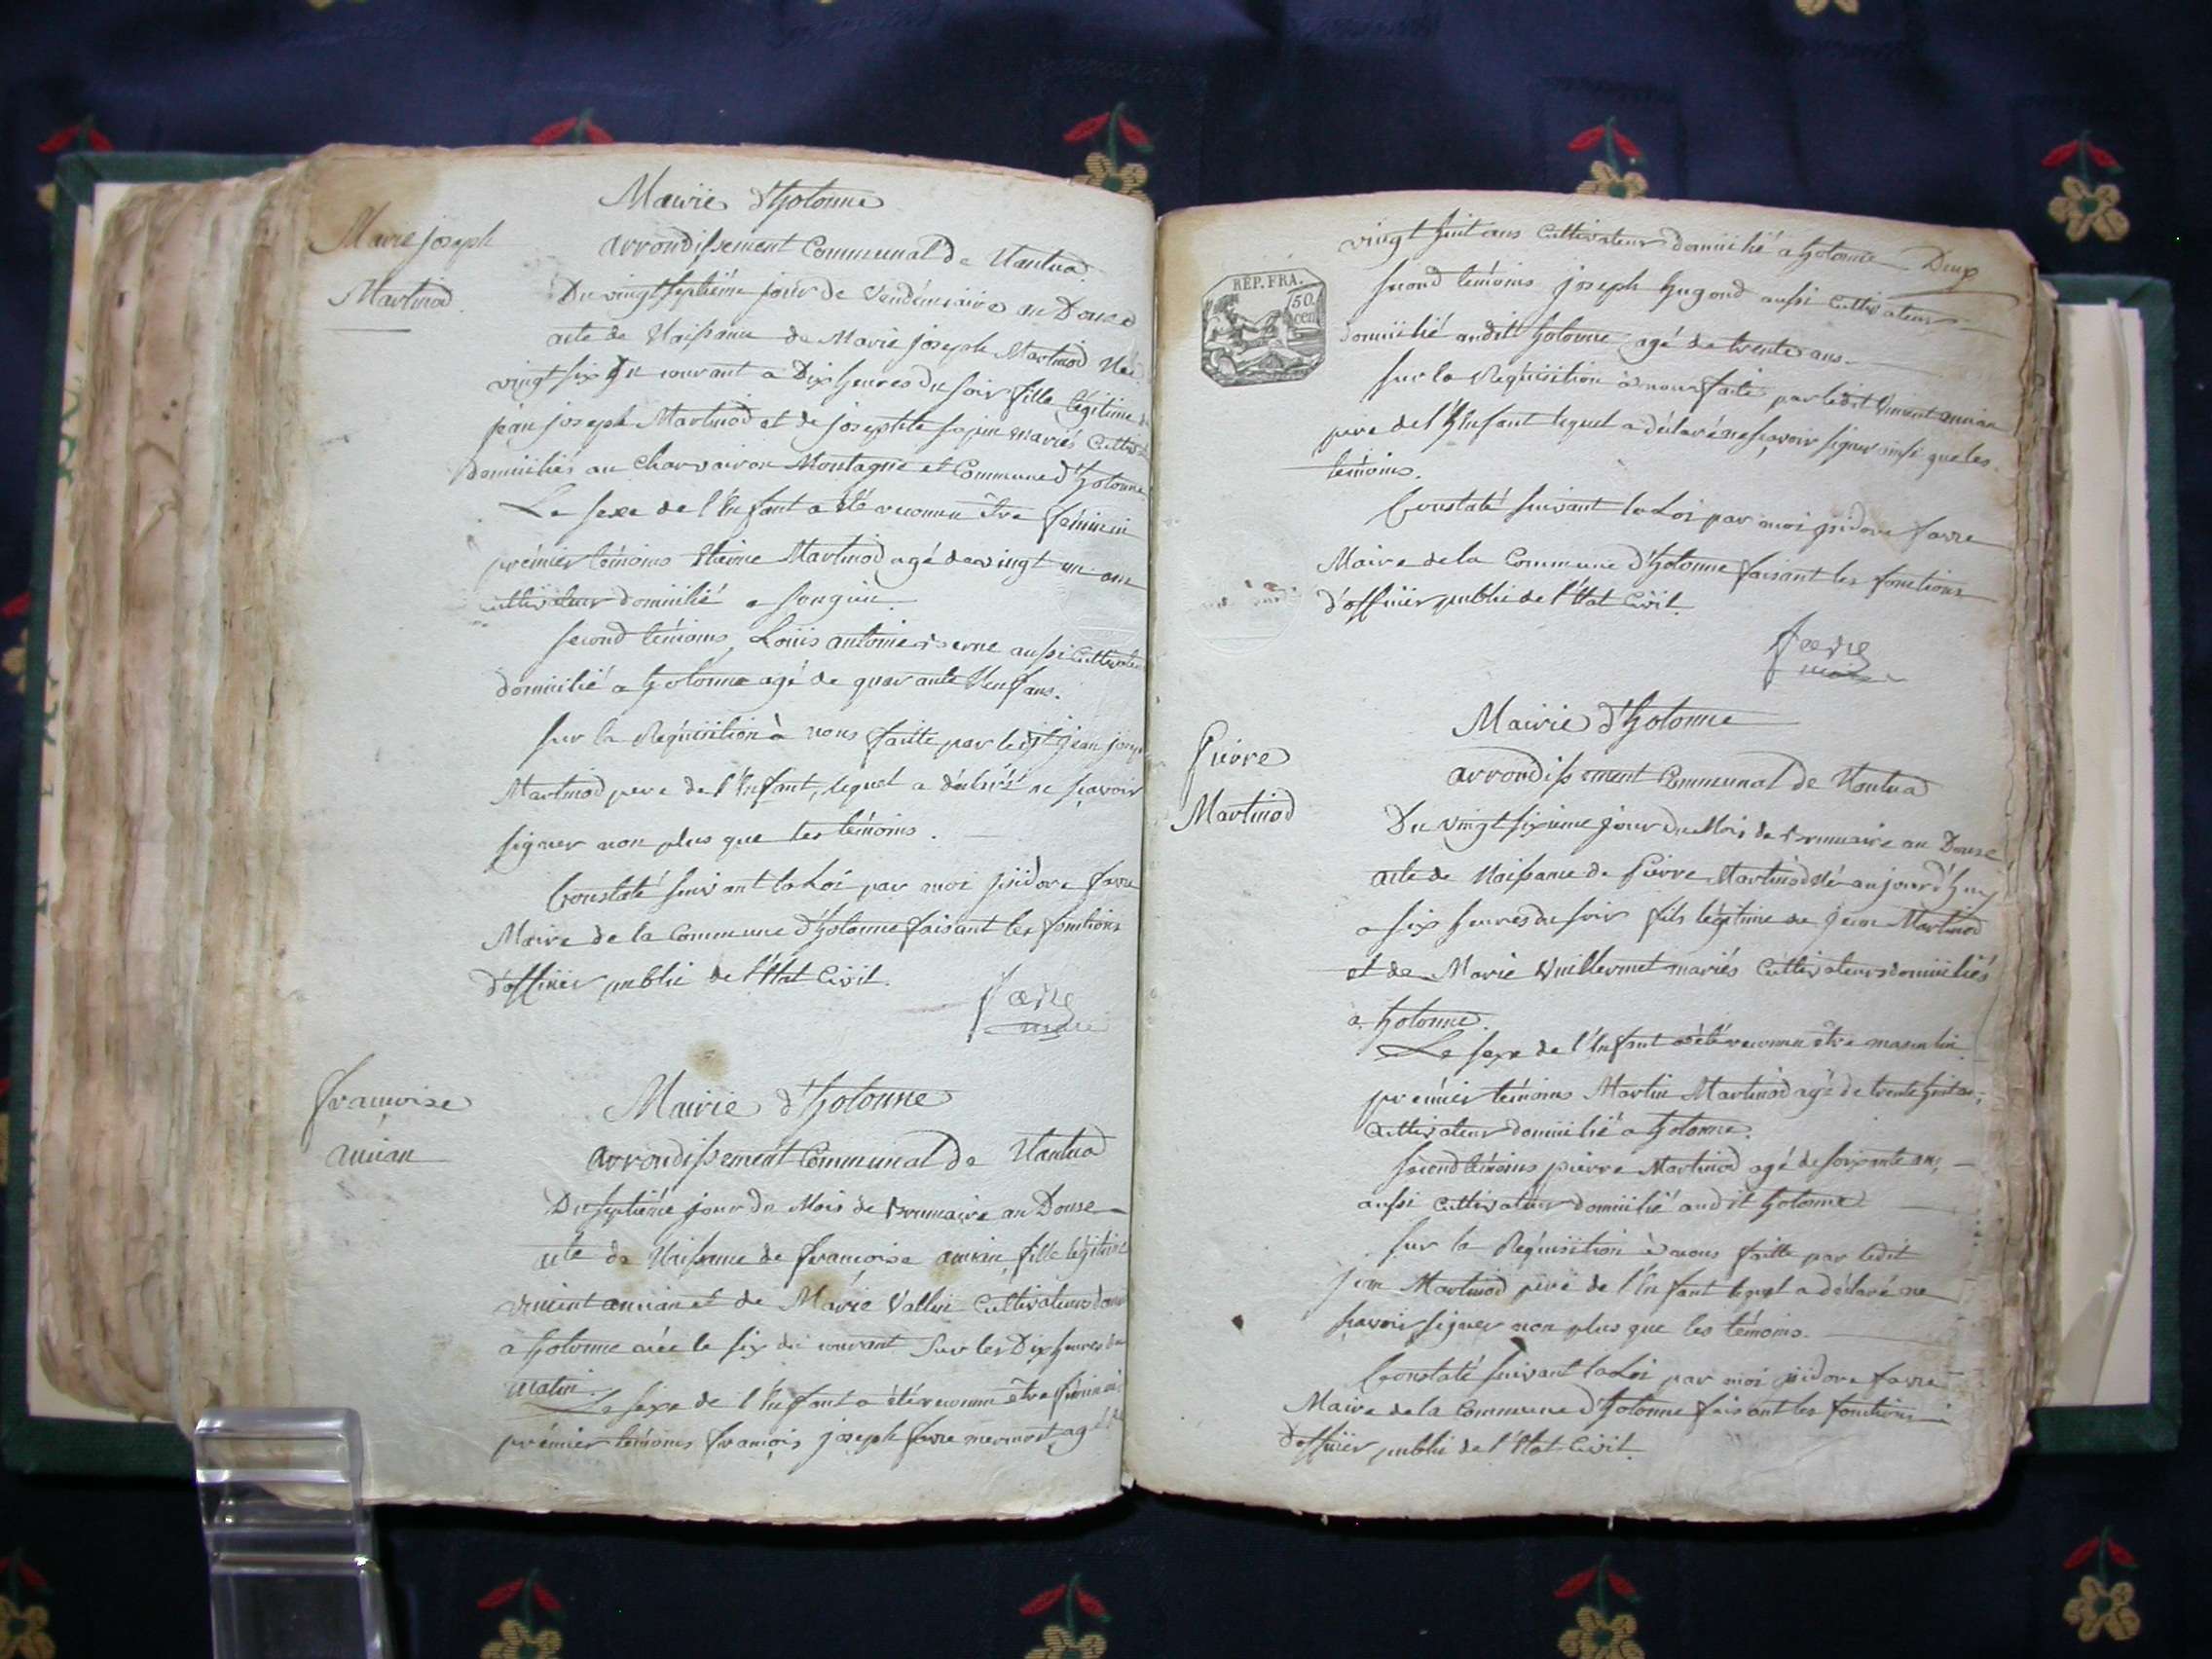 Mairie d'hotonne
Marie joseph
Martinod
arrondissement Communal de Nantua
Du vingt septième jour de Vendémiaire an Douze
acte de Naissance de Marie joseph Martinod Née
vingt six du courant a Dix heures du soir fille légitime de
jean joseph Martinod et de josephte mariés Cultiv
domiciliés au Charvairon Montagne et Commune d'hotonne
Le sexe de l'Enfant a été reconnu être féminin
prémier témoins Martinod agé de vingt un ans
cultivateur domicilié a songieu.
second témoins, Louis antoine aussi Cultivateur
domicilié a hotonne agé de quarante neuf ans.
sur la Réquisition à nous faitte par ledit jean joseph
Martinod pere de l'Enfant, lequel a déclaré ne sçavoir
signer non plus que les témoins.
Constaté suivant la Loi par moi isidore favre
Maire de la Commune d'hotonne faisant les fonctions
d'officier public de l'Etat Civil.
favre
maire
francoise
anciàn
Mairie d'hotonne
arrondissement Communal de Nantua
Du septiéme jour du Mois de Brumaire an Douze
acte de Naissance de françoise ancian, fille légitime
vincent ancian et de Marie Vallin Cultivateurs dom
a hotonne née le six du courant sur les Dix heures du
matin.
Le sexe de l'Enfant a été reconnu être féminin
prémier témoins françois joseph favre mermet agé de
vingt huit ans Cultivateur domicilié a hotonne Deux
REP. FRA.
50
cen
second témoins joseph hugond aussi Cultivateur
domicilié audit hotonne agé de trente ans.
sur la Réquisition à nous faite par ledit Vincent ancian
pere de l'Enfant lequel a déclaré ne sçavoir signer ainsi que les
témoins.
Constaté suivant la Loi par moi isidore favre
Maire de la Commune d'hotonne faisant les fonctions
d'officier public de l'Etat Civil.
favre
maire
Mairie d'hotonne
Pierre
Martinod
arrondissement Communal de Nantua
Du vingt sixieme jour du Mois de Brumaire an Douze
acte de Naissance de Pierre Martinod né aujourd'huy
a six heures du soir fils légitime de jean Martinod
et de Marie Vuillermet mariés Cultivateurs domiciliés
a hotonne.
Le sexe de l'Enfant a été reconnu être masculin
premier témoins Martin Martinod agé de trente huit ans,
Cultivateur domicilié a hotonne.
second témoins pierre Martinod agé de soixante ans,
aussi Cultivateur domicilié audit hotonne
sur la Réquisition à nous faitte par ledit
jean Martinod pere de l'Enfant lequel a déclaré ne
sçavoir signer non plus que les témoins.
Constaté suivant la Loi par moi isidore favre
Maire de la Commune d'hotonne faisant les fonctions
d'officier public de l'Etat Civil.